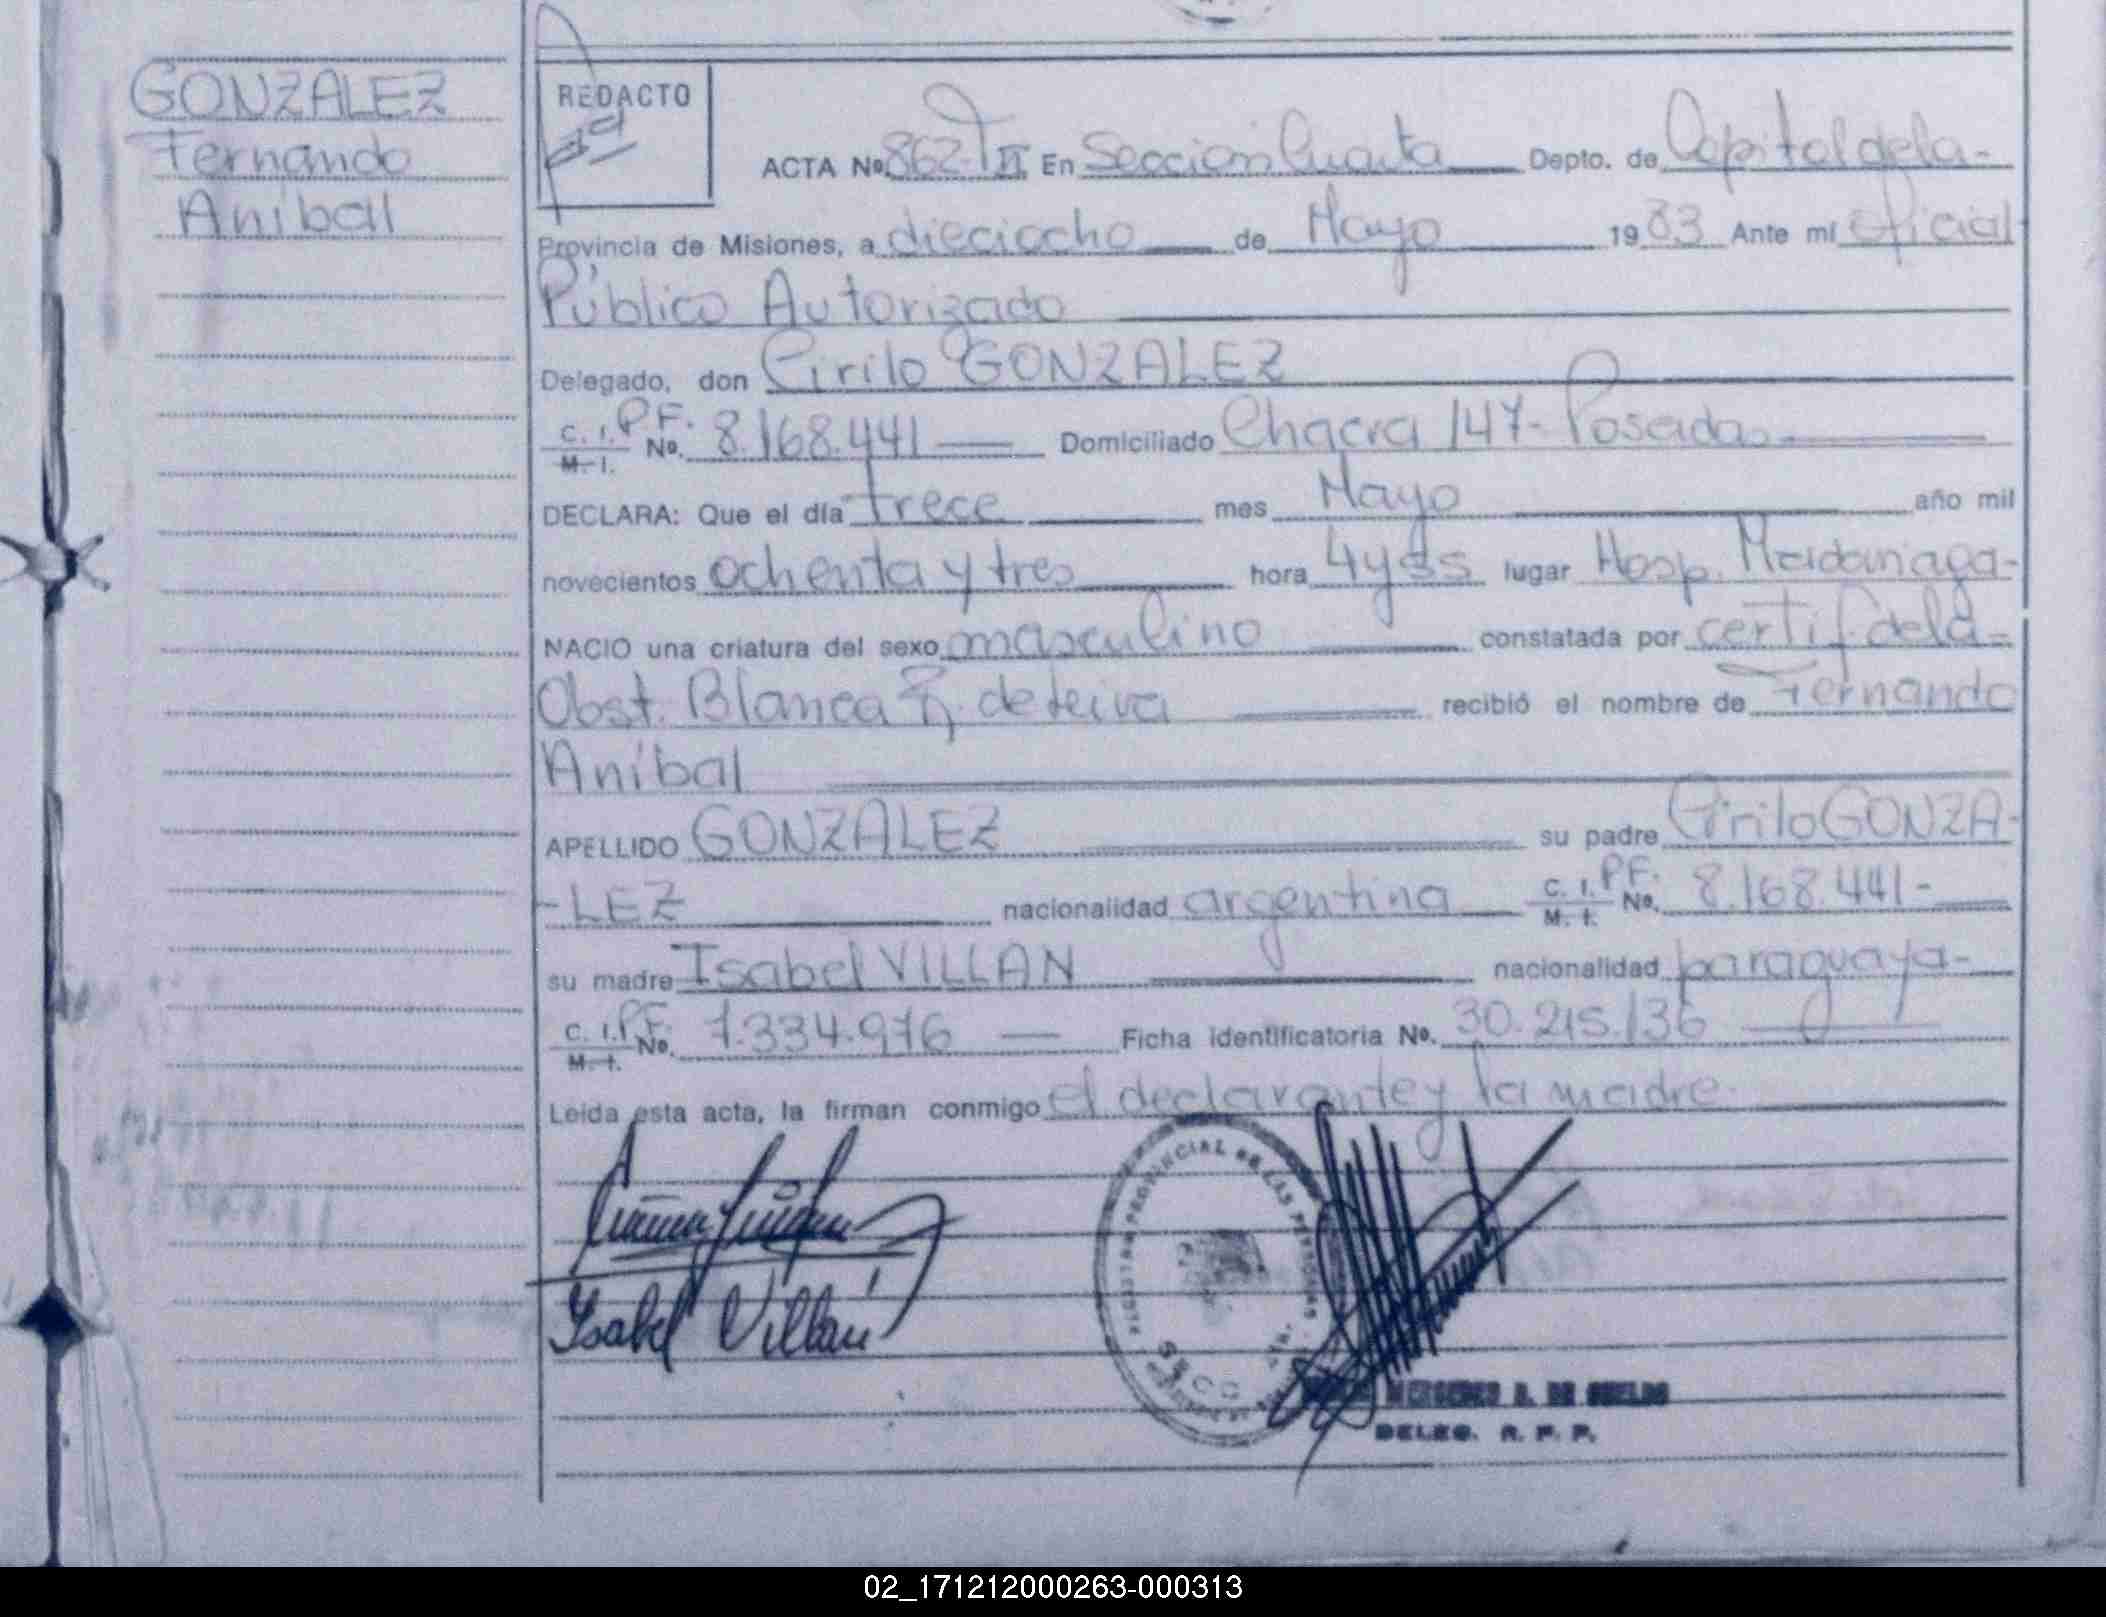 GONZALEZ
Fernando
Anibal
REDACTO
ACTA No. 862-T II En Sección Cuarta Depto. de Capital de la-
Provincia de Misiones, a dieciocho de Mayo 1983 Ante mí Oficial
Público Autorizado
Delegado, don Cirilo GONZALEZ
C. I. P.F. No. 8.168.441 Domiciliado Chacra 147- Posadas
M. I.
DECLARA: Que el día trece mes Mayo año mil
novecientos ochenta y tres hora 4 y 35 lugar Hosp. Madariaga-
NACIO una criatura del sexo masculino constatada por certif. de la-
Obst. Blanca de Leiva recibió el nombre de Fernando
Anibal
APELLIDO GONZALEZ su padre Cirilo GONZA-
-LEZ nacionalidad argentina C. I. P.F. No. 8.168.441-
M. I.
su madre Isabel VILLAN nacionalidad paraguaya-
C. I. P.F. No. 7.334.976 — Ficha identificatoria No. 30.215.136
M. I.
Leída esta acta, la firman conmigo el declarante y la madre.
Isabel Villan
PROVINCIAL DE LAS PERSONAS
SECC
MERCEDES DE
DELEG. R. P. P.
02_171212000263-000313